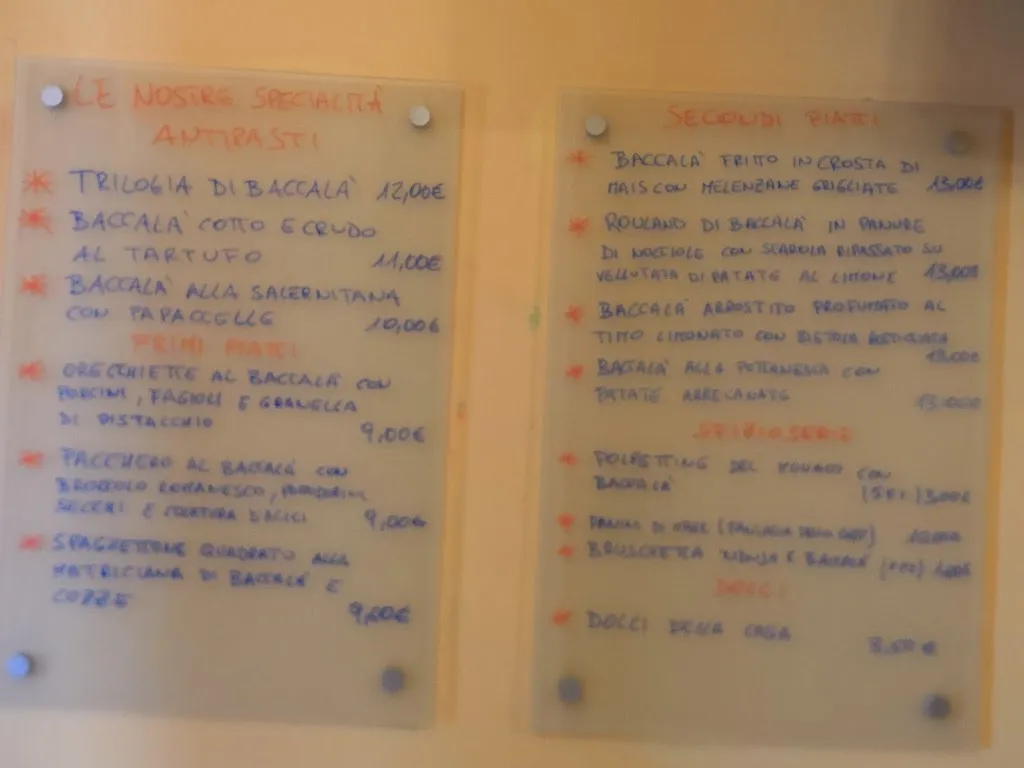 LE NOSTRE SPECIALITÀ
ANTIPASTI
* TRILOGIA DI BACCALA' 12,00€
* BACCALA' COTTO E CRUDO
AL TARTUFO 11,00€
* BACCALA' ALLA SALERNITANA
CON PAPACCELLE 10,00€
PRIMI PIATTI
* ORECCHIETTE AL BACCALA' CON
PORCINI, FAGIOLI E GRANELLA
DI PISTACCHIO 9,00€
* PACCHERO AL BACCALA' CON
BROCCOLO ROMANESCO, POMODORINI
SECCHI E COLATURA D'ALICI 9,00€
* SPAGHETTONE QUADRATO ALLA
MATRICIANA DI BACCALA' E
COZZE 9,00€
SECONDI PIATTI
* BACCALA' FRITTO IN CROSTA DI
MAIS CON MELENZANE GRIGLIATE 13,00€
* ROULAND DI BACCALA' IN PANURE
DI NOCCIOLE CON SCAROLA RIPASSATO SU
VELLUTATA DI PATATE AL LIMONE 13,00€
* BACCALA' ARROSTITO PROFUMATO AL
TIMO LIMONATO CON
13,00€
* BACCALA' ALLA CON
PATATE ARRECANATE 13,00€
SFIZIOSERIE
* POLPETTINE DEL CON
BACCALA'
* PANINI DI
* BRUSCHETTA 'NDUJA E BACCALA'
DOLCI
* DOLCI DELLA CASA 3,50€